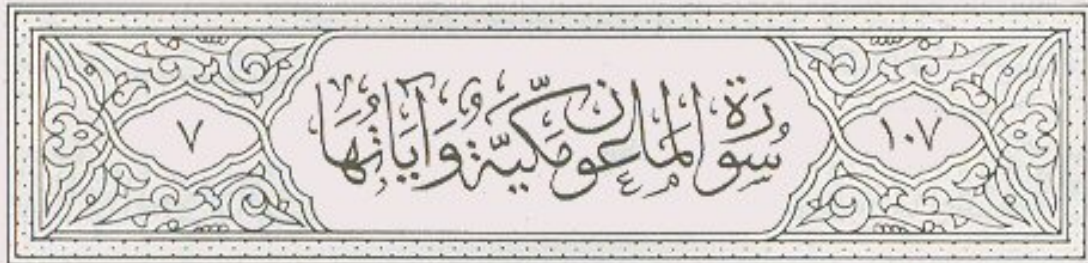 ١٠٧ سُورَةُ المَاعُونِ مَكِّيَّةٌ وَآيَاتُهَا ٧